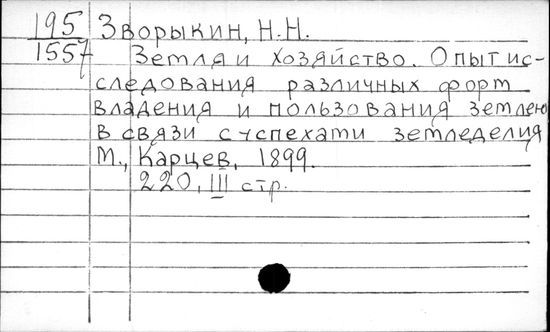 195 Зворыкин, Н.Н.
1557 Земля и хозяйство. Опыт ис-
следования различных форм
владения и пользования землею
в связи с успехами земледелия
М., Карцев, 1899.
220, III стр.